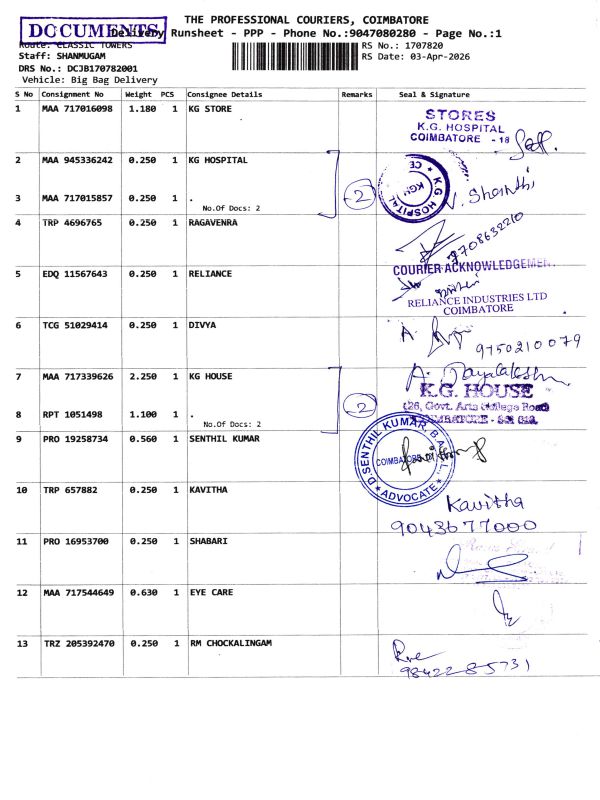 THE PROFESSIONAL COURIERS, COIMBATORE
DOCUMENTS
Delivery Runsheet - PPP - Phone No.:9047080280 - Page No.:1
Route: CLASSIC TOWERS
RS No.: 1707820
Staff: SHANMUGAM
RS Date: 03-Apr-2026
DRS No.: DCJB170782001
Vehicle: Big Bag Delivery
S No Consignment No Weight PCS Consignee Details Remarks Seal & Signature
1 MAA 717016098 1.180 1 KG STORE
STORES
K.G. HOSPITAL
COIMBATORE - 18
2 MAA 945336242 0.250 1 KG HOSPITAL
K.G HOSPITAL
3 MAA 717015857 0.250 1 .
No.Of Docs: 2
2
V. Shanthi
4 TRP 4696765 0.250 1 RAGAVENRA
9708632210
5 EDQ 11567643 0.250 1 RELIANCE
COURIER ACKNOWLEDGEMEN
RELIANCE INDUSTRIES LTD
COIMBATORE
6 TCG 51029414 0.250 1 DIVYA
9750210079
7 MAA 717339626 2.250 1 KG HOUSE
K.G. HOUSE
(26, Govt. Arts College Road)
COIMBATORE - 641 018.
8 RPT 1051498 1.100 1 .
No.Of Docs: 2
2
9 PRO 19258734 0.560 1 SENTHIL KUMAR
D. SENTHIL KUMAR, B.A., B.L.,
ADVOCATE
10 TRP 657882 0.250 1 KAVITHA
Kavitha
9043677000
11 PRO 16953700 0.250 1 SHABARI
12 MAA 717544649 0.630 1 EYE CARE
13 TRZ 205392470 0.250 1 RM CHOCKALINGAM
9842285731